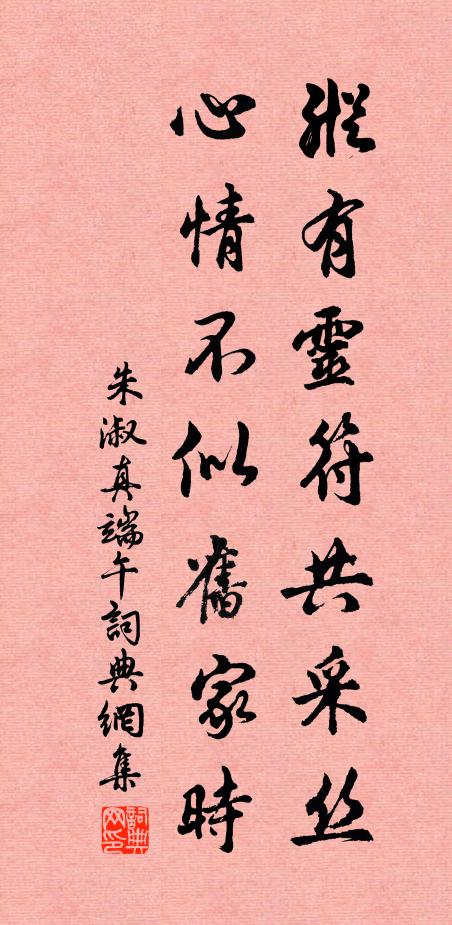 縱有靈符共采丝
心情不似舊家時
朱淑真端午詞典網集
詞典网印